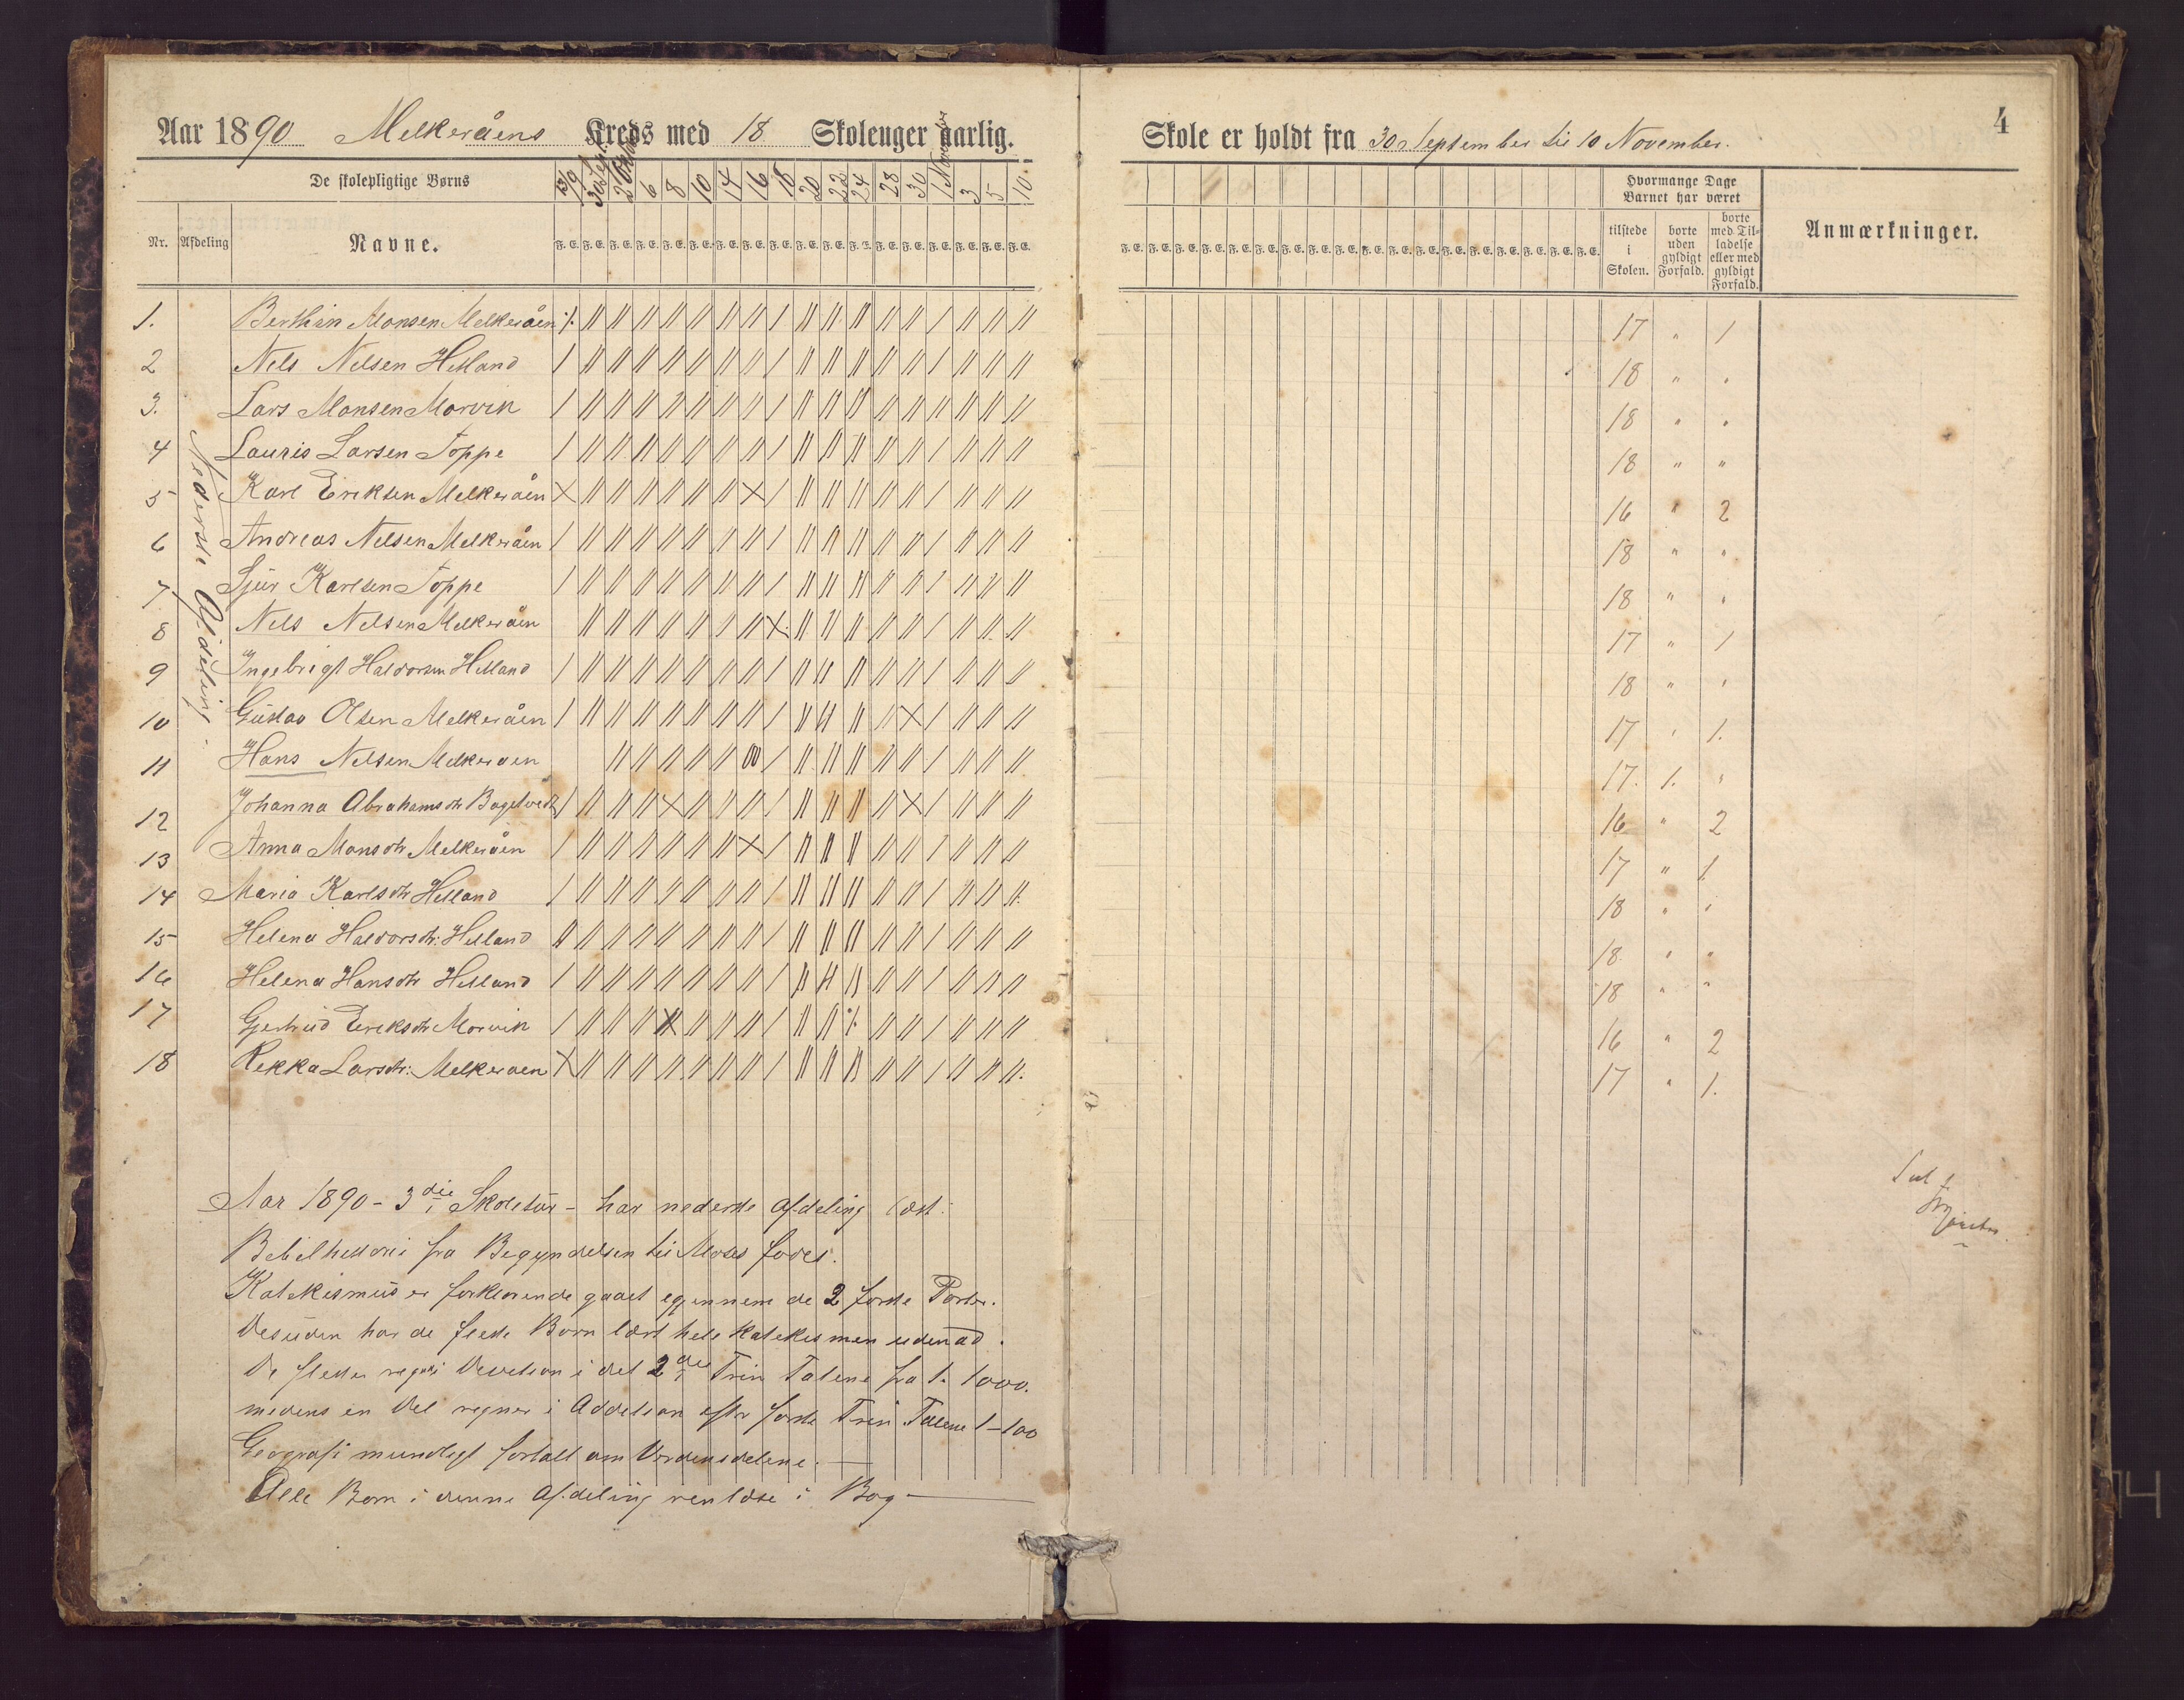 Aar 1890 Melkeråens Kreds med 18 Skoleuger aarlig.
De skolepligtige Børns
13/9 30 Sept. 2 Oktob 6 8 10 14 16 18 20 22 24 28 30 1 November 3 5 10
Nr. Afdeling Navne. F. E. F. E. F. E. F. E. F. E. F. E. F. E. F. E. F. E. F. E. F. E. F. E. F. E. F. E. F. E. F. E. F. E. F. E.
Nederste Afdeling.
1. Berthin Monsen Melkeråen
2 Nels Nelsen Helland
3. Lars Monsen Morvik
4 Lauris Larsen Toppe
5 Karl Eriksen Melkeråen
6 Andreas Nelsen Melkeråen
7 Sjur Karlsen Toppe
8 Nels Nelsen Melkeråen
9 Ingebrigt Haldorsen Helland
10 Gustav Olsen Melkeråen
11 Hans Nelsen Melkeraen
12 Johanna Abrahamsdtr
13 Anna Monsdtr Melkeråen
14 Maria Karlsdtr Helland
15 Helena Haldorsdtr: Helland
16 Helena Hansdtr Helland
17 Gjertrud Eriksdtr Morvik
18 Rekka Larsdtr: Melkeraen
Aar 1890 - 3die Skoletur - har nederste Afdeling læst:
Bibelhistorie fra Begyndelsen til Moses fødes.
Katekismus er forklarende gaaet egjennem de 2 første Parter.
Desuden har de fleste Børn lært hele Katekismen udenad.
De fleste regne i det 2die Trin Talene fra 1-1000.
medens en Del regner i Addition efter første Trin Talene 1-100
Geografi mundtligt fortalt om Verdensdelene.
Alle Børn i denne Afdeling renlæse i Bog
4
Skole er holdt fra 30 September til 10 November.
F. E. F. E. F. E. F. E. F. E. F. E. F. E. F. E. F. E. F. E. F. E. F. E. F. E. F. E. F. E. F. E. F. E. F. E.
Hvormange Dage
Barnet har været
tilstede i Skolen.
borte uden gyldigt Forfald.
borte med Tilladelse eller med gyldigt Forfald.
Anmærkninger.
17 " 1
18 " "
18 " "
18 " "
16 " 2
18 " "
18 " "
17 " 1
18 " "
17 " 1.
17. 1. "
16 " 2
17 " 1
18 " "
18 " "
18 " "
16 " 2
17 " 1.